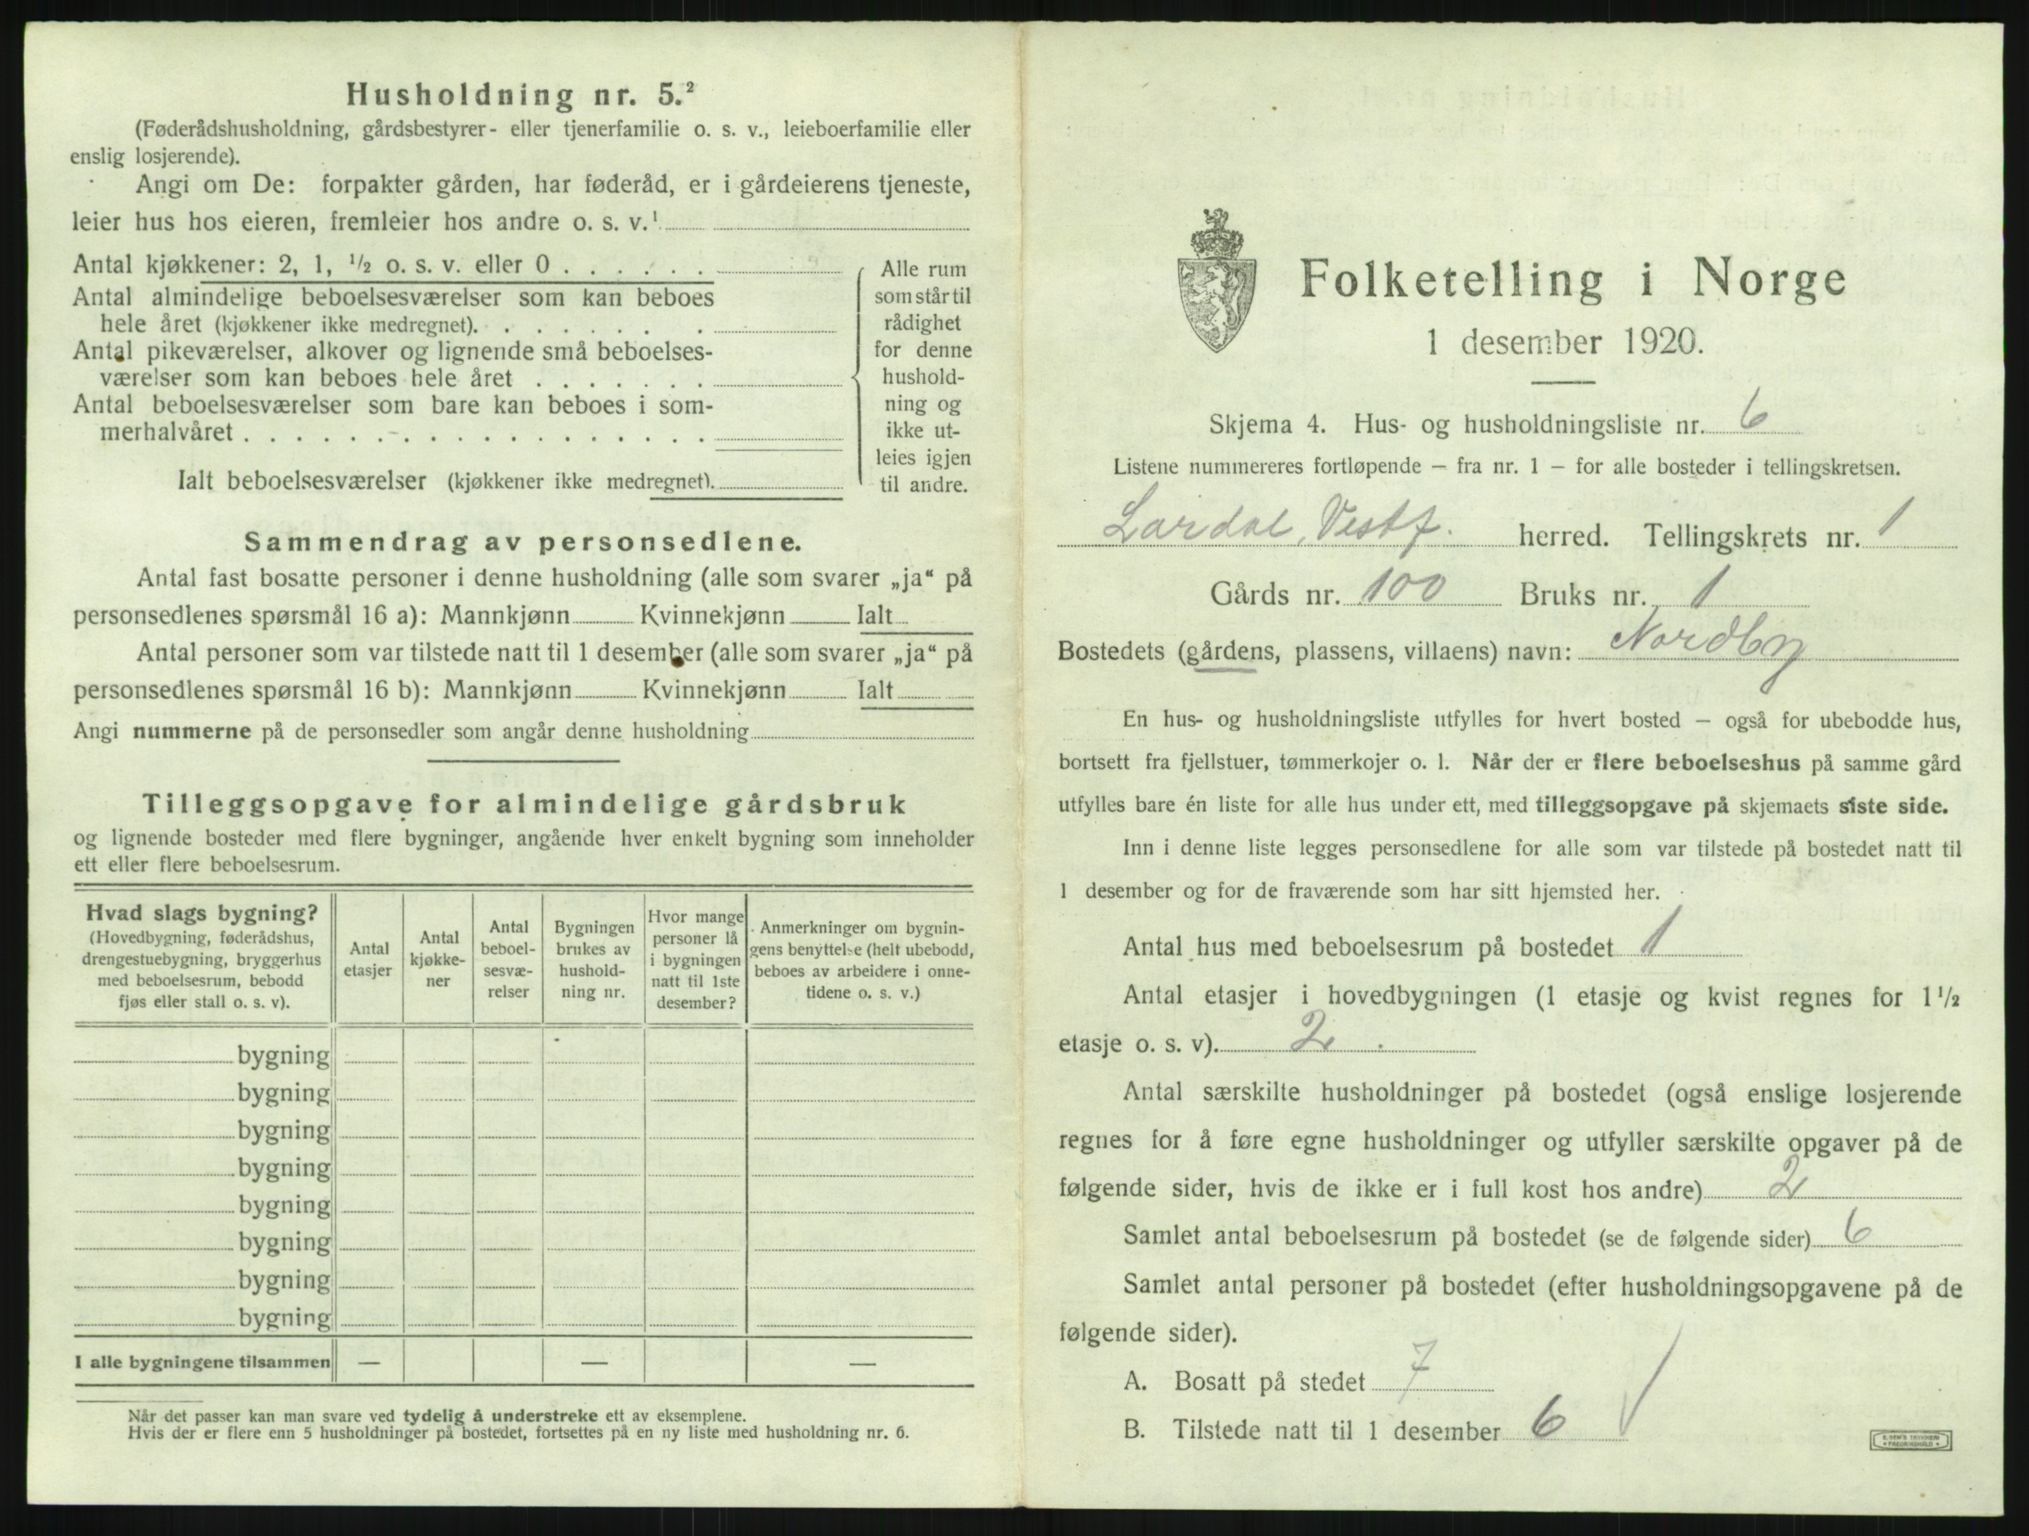 Husholdning nr. 5.²
(Føderådshusholdning, gårdsbestyrer- eller tjenerfamilie o. s. v., leieboerfamilie eller
enslig losjerende).
Angi om De: forpakter gården, har føderåd, er i gårdeierens tjeneste,
leier hus hos eieren, fremleier hos andre o. s. v.¹
Antal kjøkkener: 2, 1, ½ o. s. v. eller 0 . . . . . .
Antal almindelige beboelsesværelser som kan beboes
hele året (kjøkkener ikke medregnet). . . . . . . .
Antal pikeværelser, alkover og lignende små beboelses-
værelser som kan beboes hele året . . . . . . .
Antal beboelsesværelser som bare kan beboes i som-
merhalvåret . . . . . . . . . . . . . . . . .
Ialt beboelsesværelser (kjøkkener ikke medregnet).
Alle rum
som står til
rådighet
for denne
hushold-
ning og
ikke ut-
leies igjen
til andre.
Sammendrag av personsedlene.
Antal fast bosatte personer i denne husholdning (alle som svarer „ja“ på
personsedlenes spørsmål 16 a): Mannkjønn Kvinnekjønn Ialt
Antal personer som var tilstede natt til 1 desember (alle som svarer „ja“ på
personsedlenes spørsmål 16 b): Mannkjønn Kvinnekjønn Ialt
Angi nummerne på de personsedler som angår denne husholdning
Tilleggsopgave for almindelige gårdsbruk
og lignende bosteder med flere bygninger, angående hver enkelt bygning som inneholder
ett eller flere beboelsesrum.
Hvad slags bygning?
(Hovedbygning, føderådshus,
drengestuebygning, bryggerhus
med beboelsesrum, bebodd
fjøs eller stall o. s. v).
Antal
etasjer
Antal
kjøkke-
ner
Antal
beboel-
sesvæ-
relser
Bygningen
brukes av
hushold-
ning nr.
Hvor mange
personer lå
i bygningen
natt til 1ste
desember?
Anmerkninger om bygnin-
gens benyttelse (helt ubebodd,
beboes av arbeidere i onne-
tidene o. s. v.)
bygning
bygning
bygning
bygning
bygning
bygning
bygning
bygning
I alle bygningene tilsammen — — —
Når det passer kan man svare ved tydelig å understreke ett av eksemplene.
Hvis der er flere enn 5 husholdninger på bostedet, fortsettes på en ny liste med husholdning nr. 6.
Folketelling i Norge
1 desember 1920.
Skjema 4. Hus- og husholdningsliste nr. 6
Listene nummereres fortløpende – fra nr. 1 – for alle bosteder i tellingskretsen.
Lardal, Vestf. herred. Tellingskrets nr. 1
Gårds nr. 100 Bruks nr. 1
Bostedets (gårdens, plassens, villaens) navn: Nordby
En hus- og husholdningsliste utfylles for hvert bosted – også for ubebodde hus,
bortsett fra fjellstuer, tømmerkojer o. l. Når der er flere beboelseshus på samme gård
utfylles bare én liste for alle hus under ett, med tilleggsopgave på skjemaets siste side.
Inn i denne liste legges personsedlene for alle som var tilstede på bostedet natt til
1 desember og for de fraværende som har sitt hjemsted her.
Antal hus med beboelsesrum på bostedet 1
Antal etasjer i hovedbygningen (1 etasje og kvist regnes for 1½
etasje o. s. v). 2.
Antal særskilte husholdninger på bostedet (også enslige losjerende
regnes for å føre egne husholdninger og utfyller særskilte opgaver på de
følgende sider, hvis de ikke er i full kost hos andre) 2
Samlet antal beboelsesrum på bostedet (se de følgende sider) 6
Samlet antal personer på bostedet (efter husholdningsopgavene på de
følgende sider).
A. Bosatt på stedet 7
B. Tilstede natt til 1 desember 6